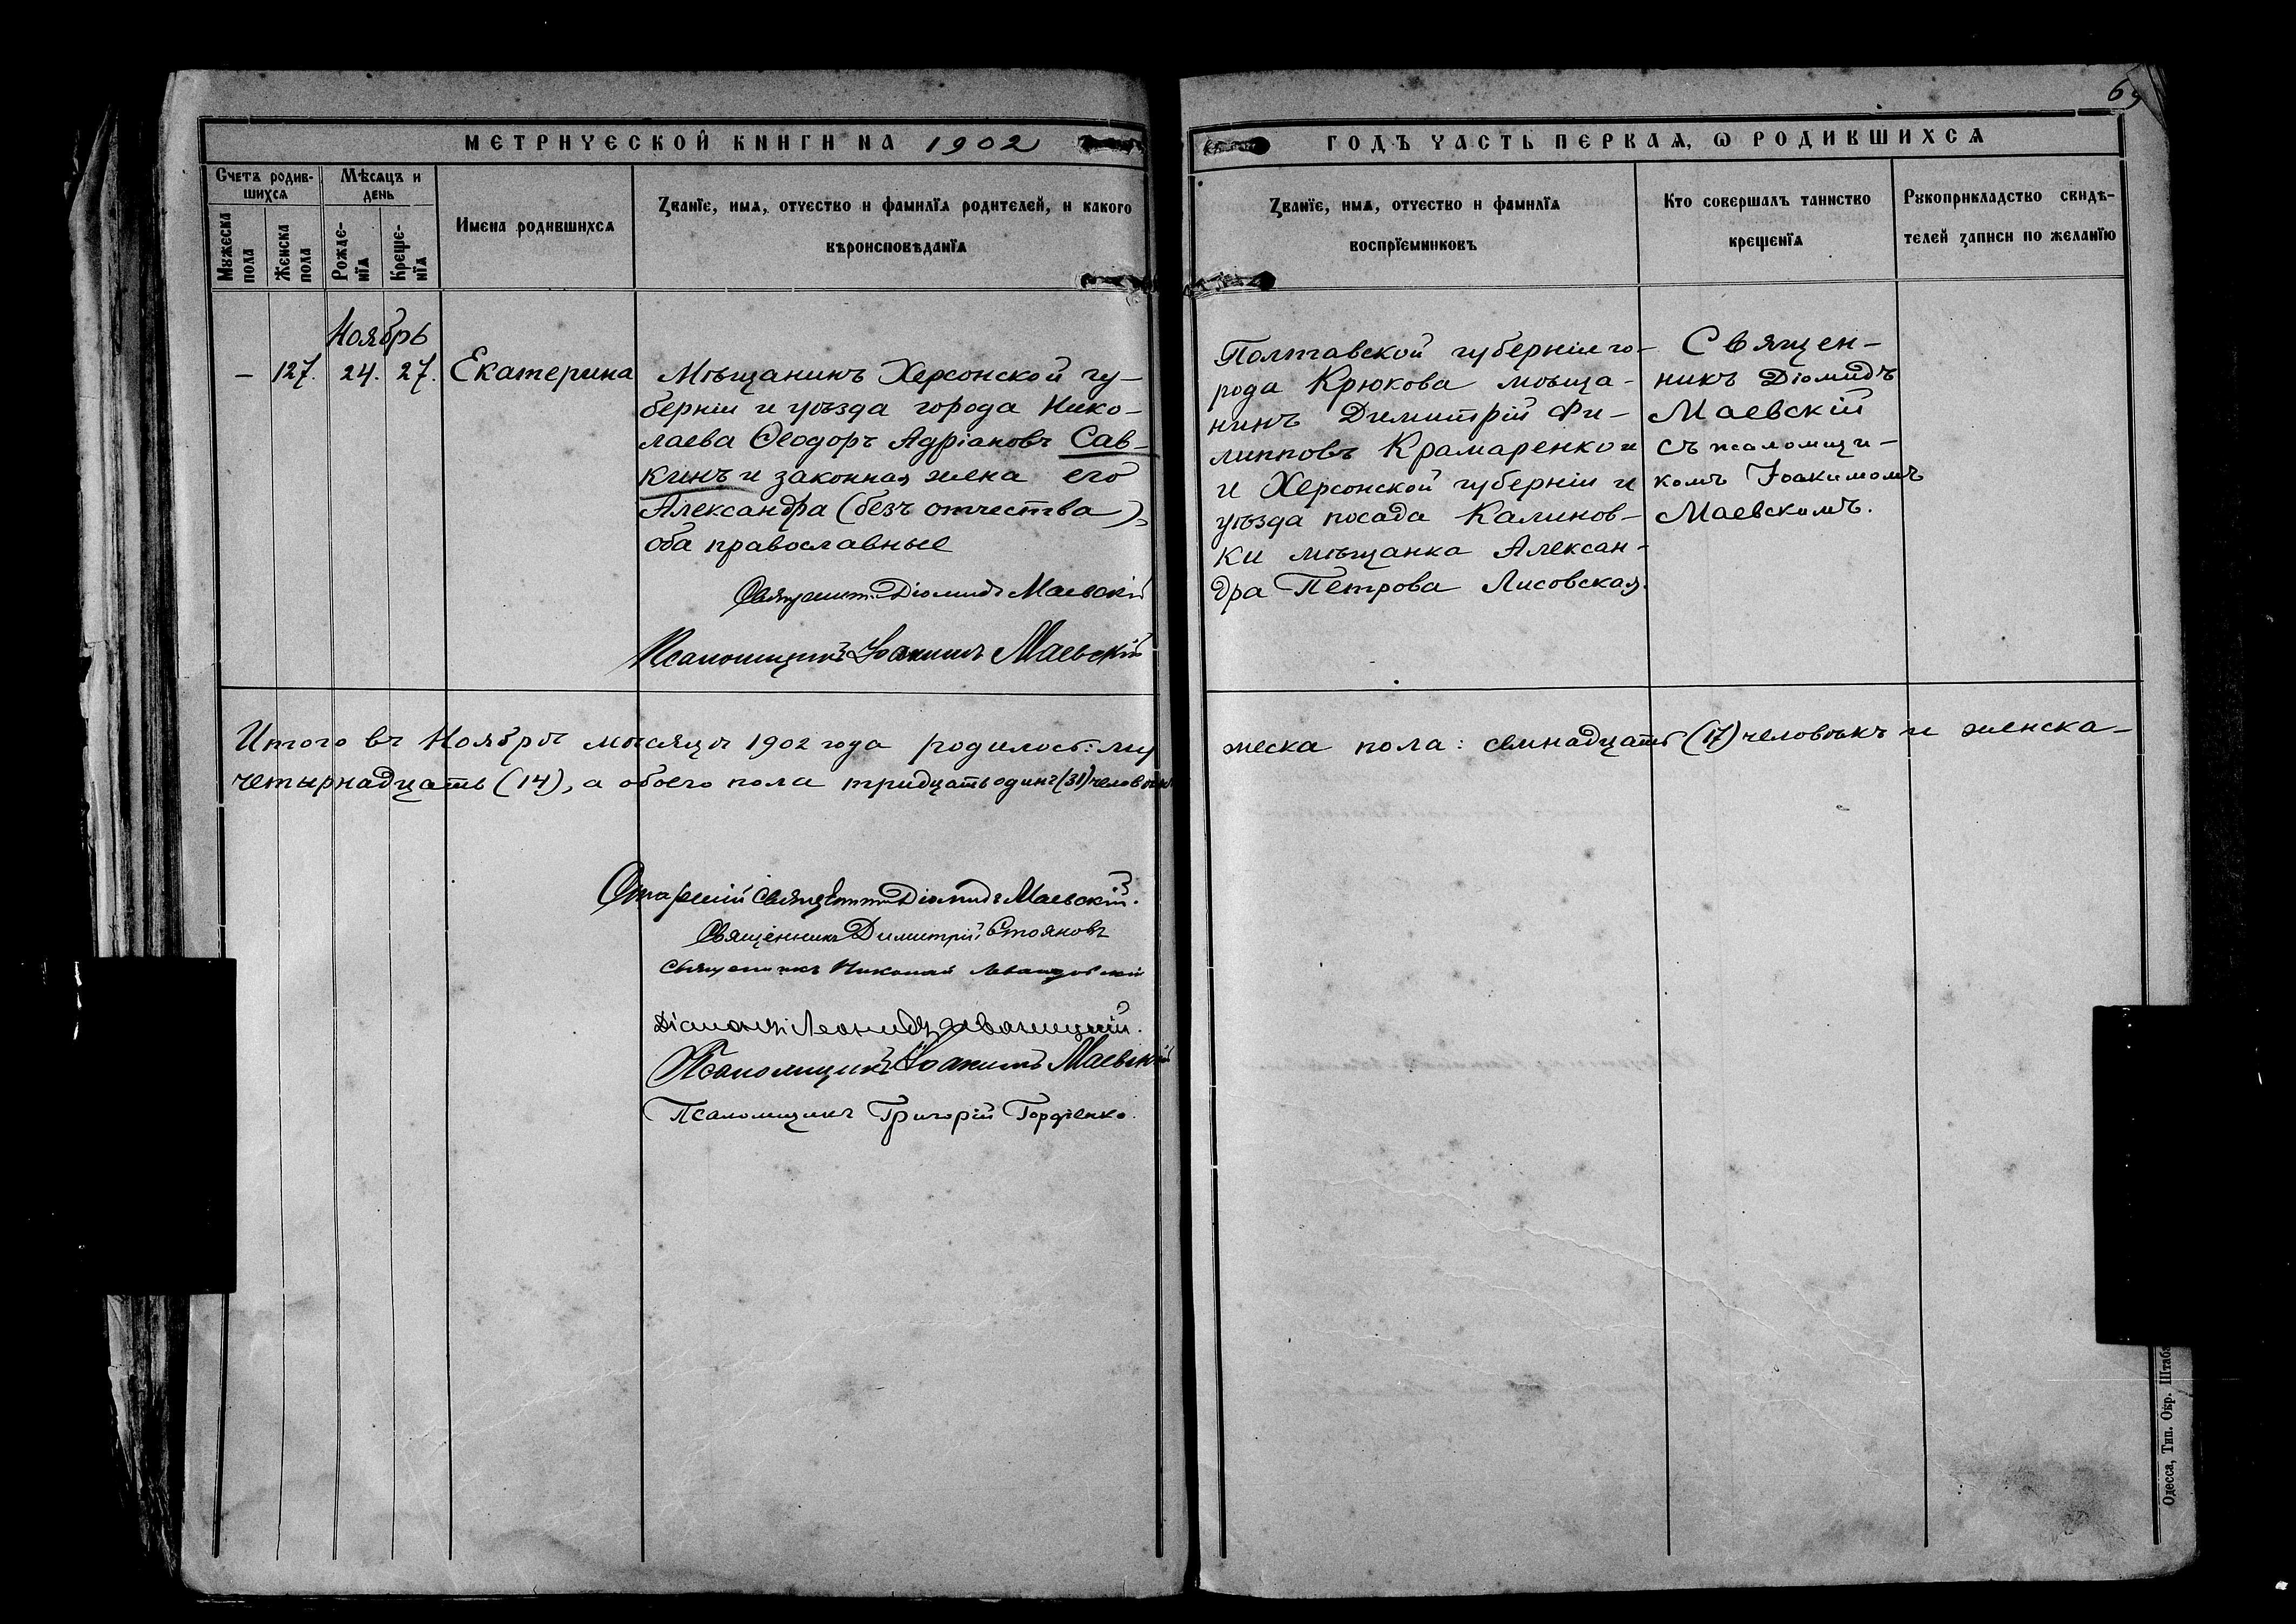 69
МЕТРИЧЕСКОЙ КНИГИ НА 1902
ГОДЪ ЧАСТЬ ПЕРВАЯ, Ѡ РОДИВШИХСЯ
Счетъ родив-
шихся
Мѣсяцъ и
день
Мужеска
пола
Женска
пола
Рожде-
нїя
Креще-
нїя
Имена родившихся
Званїе, имя, отчество и фамилїя родителей, и какого
вѣроисповѣданїя
Званїе, имя, отчество и фамилїя
воспрїемниковъ
Кто совершалъ таинство
крещенїя
Рукоприкладство свидѣ-
телей записи по желанїю
Ноябрь
— 127. 24. 27. Екатерина
Мѣщанинъ Херсонской гу-
берніи и уѣзда города Нико-
лаева Ѳеодоръ Адріановъ Сав-
кинъ и законная жена его
Александра (безъ отчества),
оба православные
Священник Діомидъ Маевскій
Псаломщикъ Іоакимъ Маевскій
Полтавской губерніи го-
рода Крюкова мѣща-
нинъ Димитрій Фи-
липповъ Крамаренко и
и Херсонской губерніи и
уѣзда посада Калинов-
ки мѣщанка Алексан-
дра Петрова Лисовская.
Священ-
никъ Діомидъ
Маевскій
съ псаломщи-
комъ Іоакимомъ
Маевскимъ.
Итого въ Ноябрѣ мѣсяцѣ 1902 года родилось: му
жеска пола: семнадцать (17) человѣкъ и женска-
четырнадцать (14), а обоего пола тридцать одинъ (31) человѣкъ
Старшій Священник Діомидъ Маевскій.
Священникъ Димитрій Стояновъ
Священникъ Николай
Діаконъ Леонидъ
Псаломщикъ Іоакимъ Маевскій
Псаломщикъ Григорій Гордіенко.
Одесса, Тип. Окр. Штаба